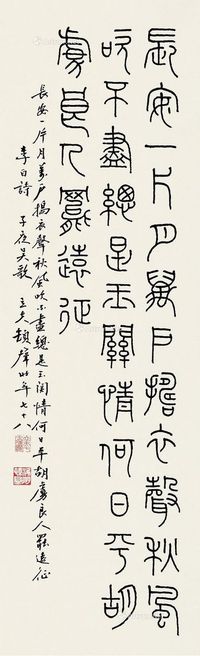 長安一片月萬戶擣衣聲秋風
吹不盡總是玉關情何日平胡
虜良人罷遠征
長安一片月萬戶搗衣聲秋風吹不盡總是玉關情何日平胡虜良人罷遠征
李白詩 子夜吳歌 年七十八